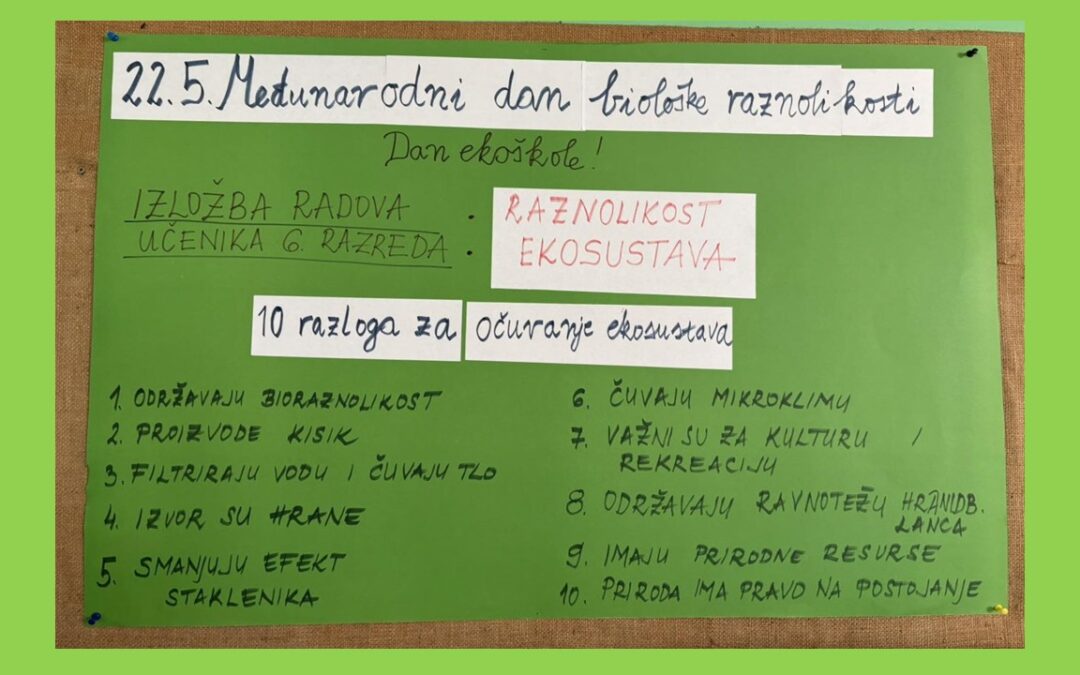 22.5. Međunarodni dan biološke raznolikosti
Dan ekoškole!
IZLOŽBA RADOVA
UČENIKA 6. RAZREDA :
RAZNOLIKOST
EKOSUSTAVA
10 razloga za očuvanje ekosustava
1. ODRŽAVAJU BIORAZNOLIKOST
2. PROIZVODE KISIK
3. FILTRIRAJU VODU I ČUVAJU TLO
4. IZVOR SU HRANE
5. SMANJUJU EFEKT
STAKLENIKA
6. ČUVAJU MIKROKLIMU
7. VAŽNI SU ZA KULTURU I
REKREACIJU
8. ODRŽAVAJU RAVNOTEŽU HRANIDB.
LANCA
9. IMAJU PRIRODNE RESURSE
10. PRIRODA IMA PRAVO NA POSTOJANJE